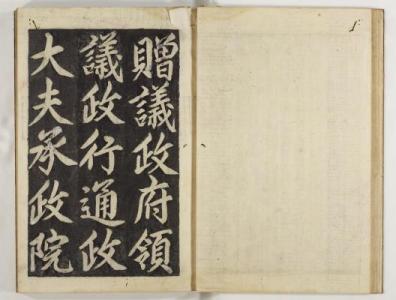 贈議政府領
議政行通政
大夫承政院